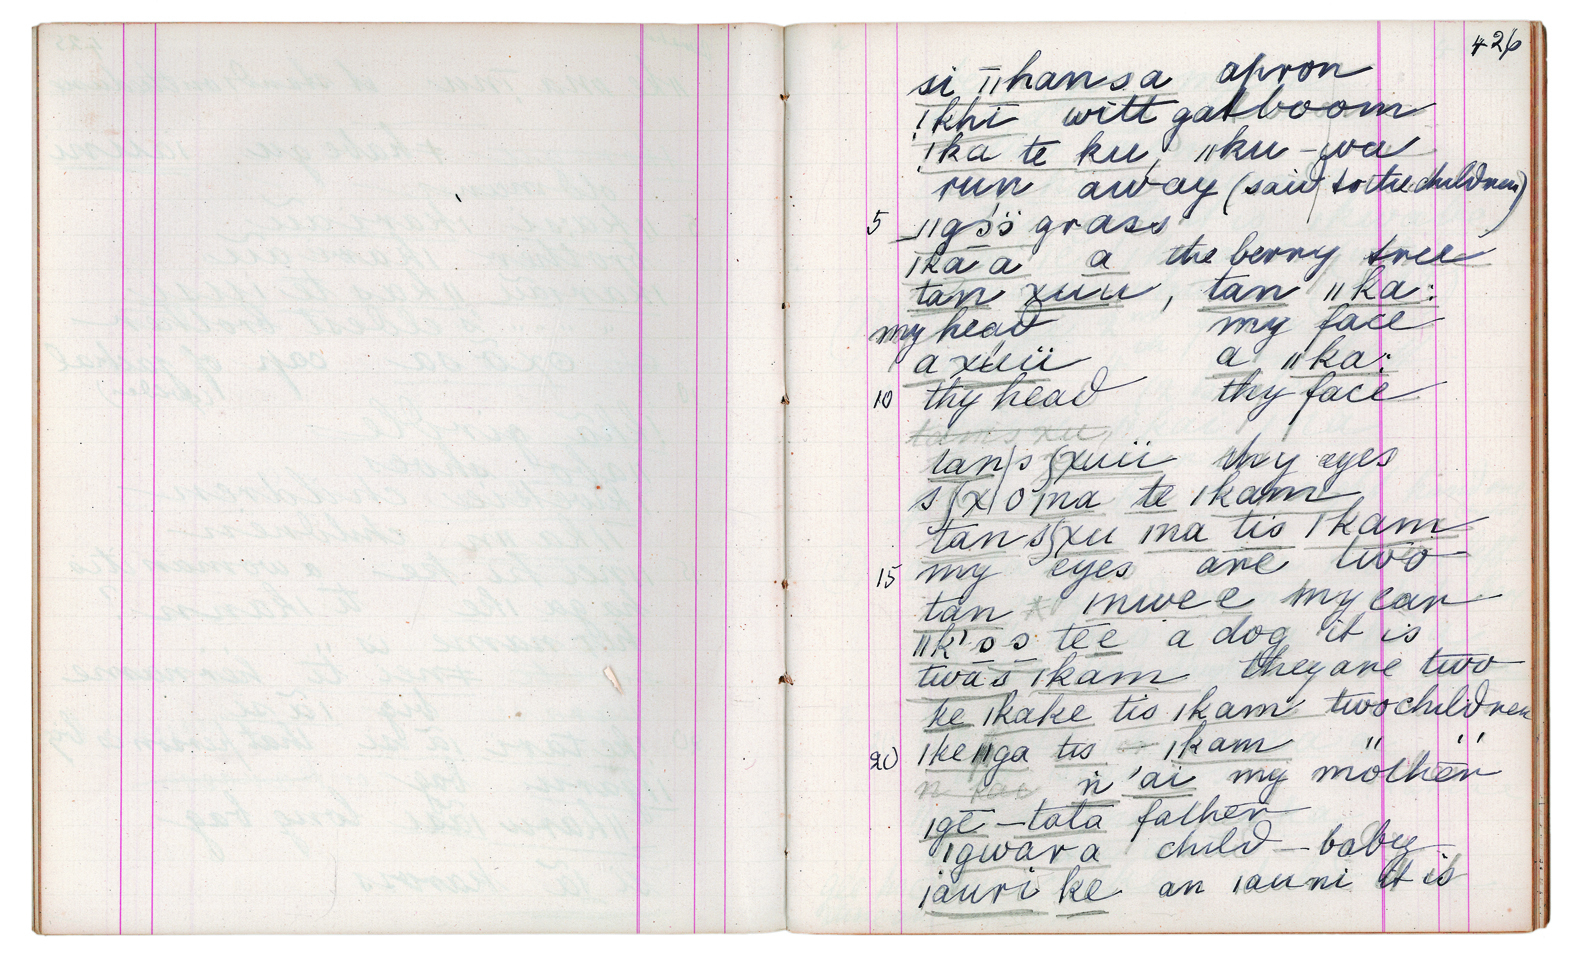 426
si ǁhansa apron
!khi witt gatboom
!ka te ku, ǁku-wa
run away (said to the children)
5 ǁgɔ̈ɔ̈ grass
ǀkāa a the berry tree
tan xuu, tan ǁka:
my head my face
a xuii a ǁka:
10 thy head thy face
tansxu,
tan|s ʃxuii thy eyes
sʃx|o|na te ǀkam
tan sʃxu ǀna tis ǀkam
15 my eyes are two
tan ǀnwee my ear
ǁk'ɔs tee a dog it is
twās ǀkam they are two
ke ǀkake tis ǀkam two children
20 ǀkeǁga tis ǀkam " "
n̄ 'ai my mother
ǀgē-tata father
ǀgwara child-baby
ǀauri ke an ǀauni it is